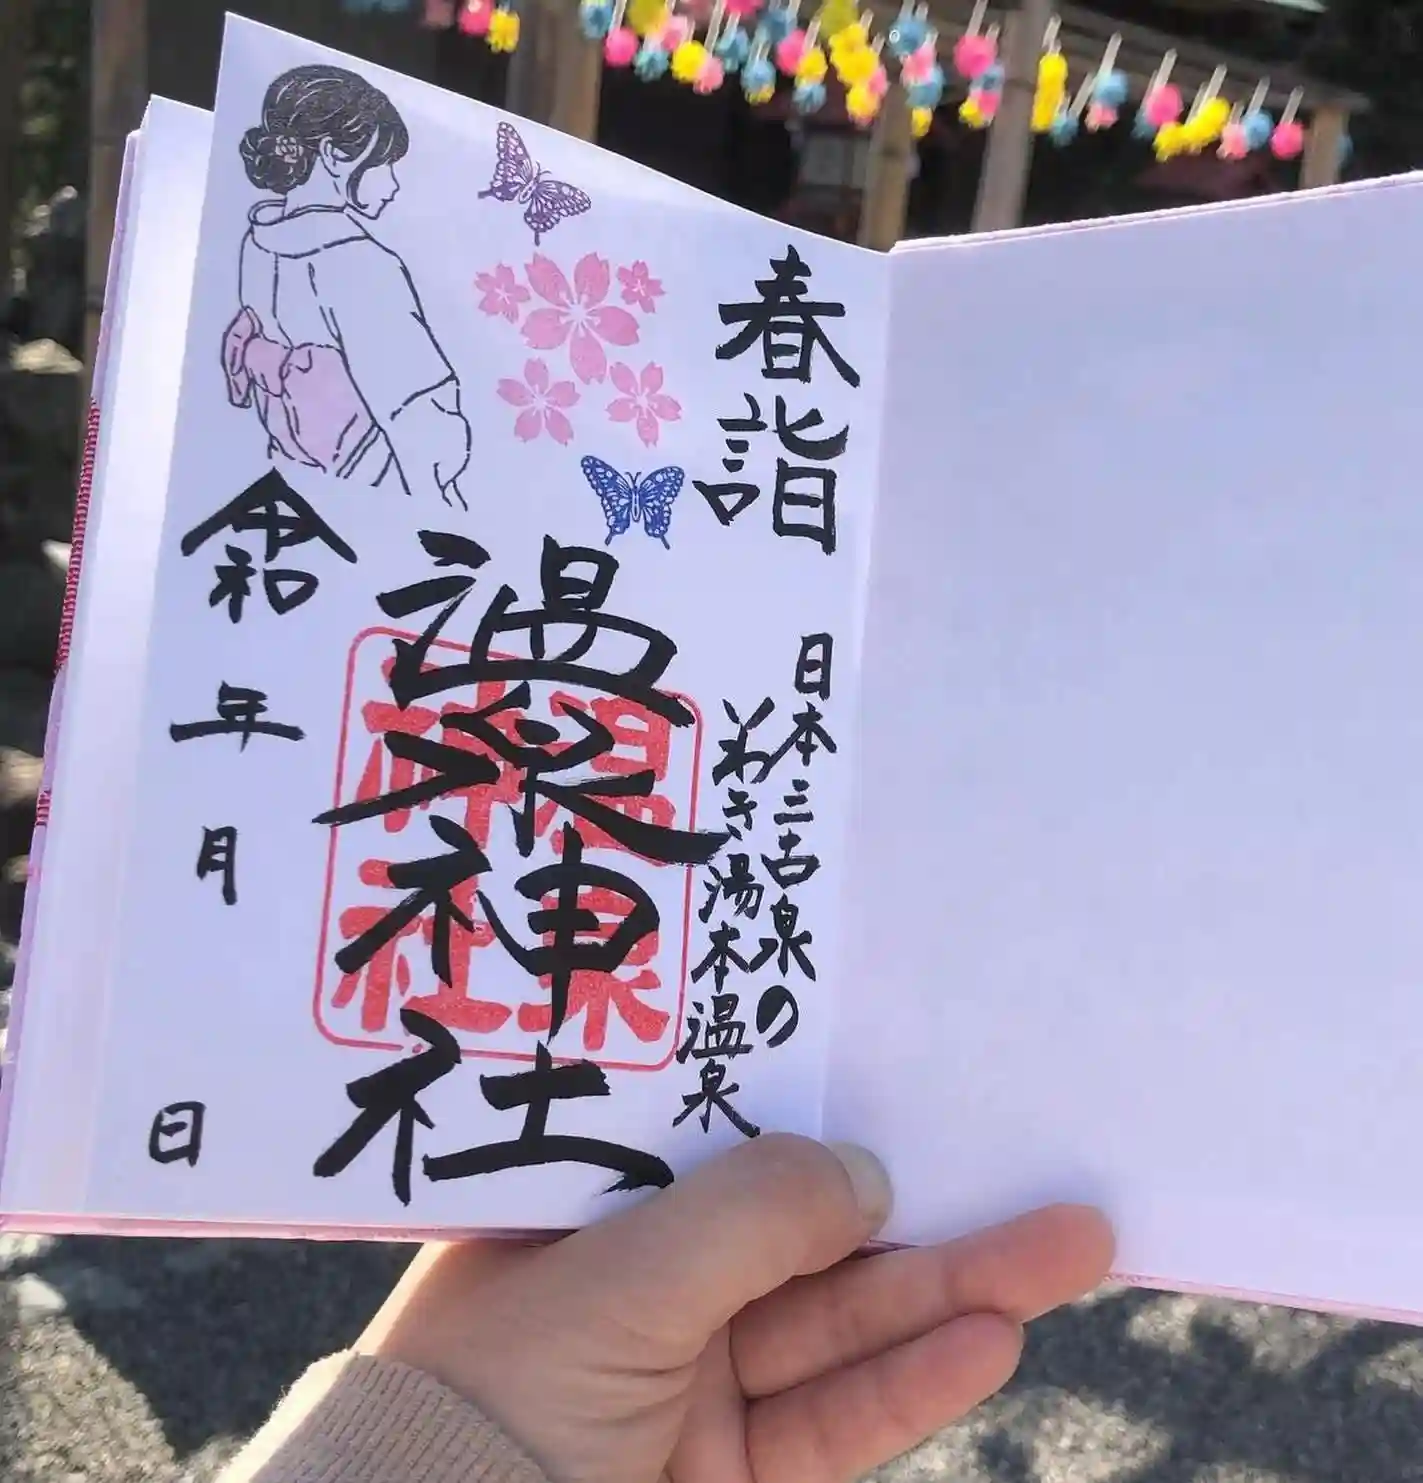 春詣
日本三古泉の
いわき湯本温泉
温泉神社
温泉
神社
令和
年
月
日